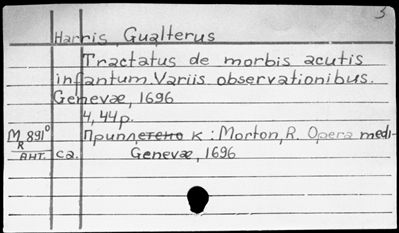 3
Harris, Gualterus
Tractatus de morbis acutis
infantum. Variis observationibus.
Genevæ, 1696
4, 44 p.
M 891⁰ Приплетено к : Morton, R. Opera medi-
R
АНТ. ca. Genevæ, 1696